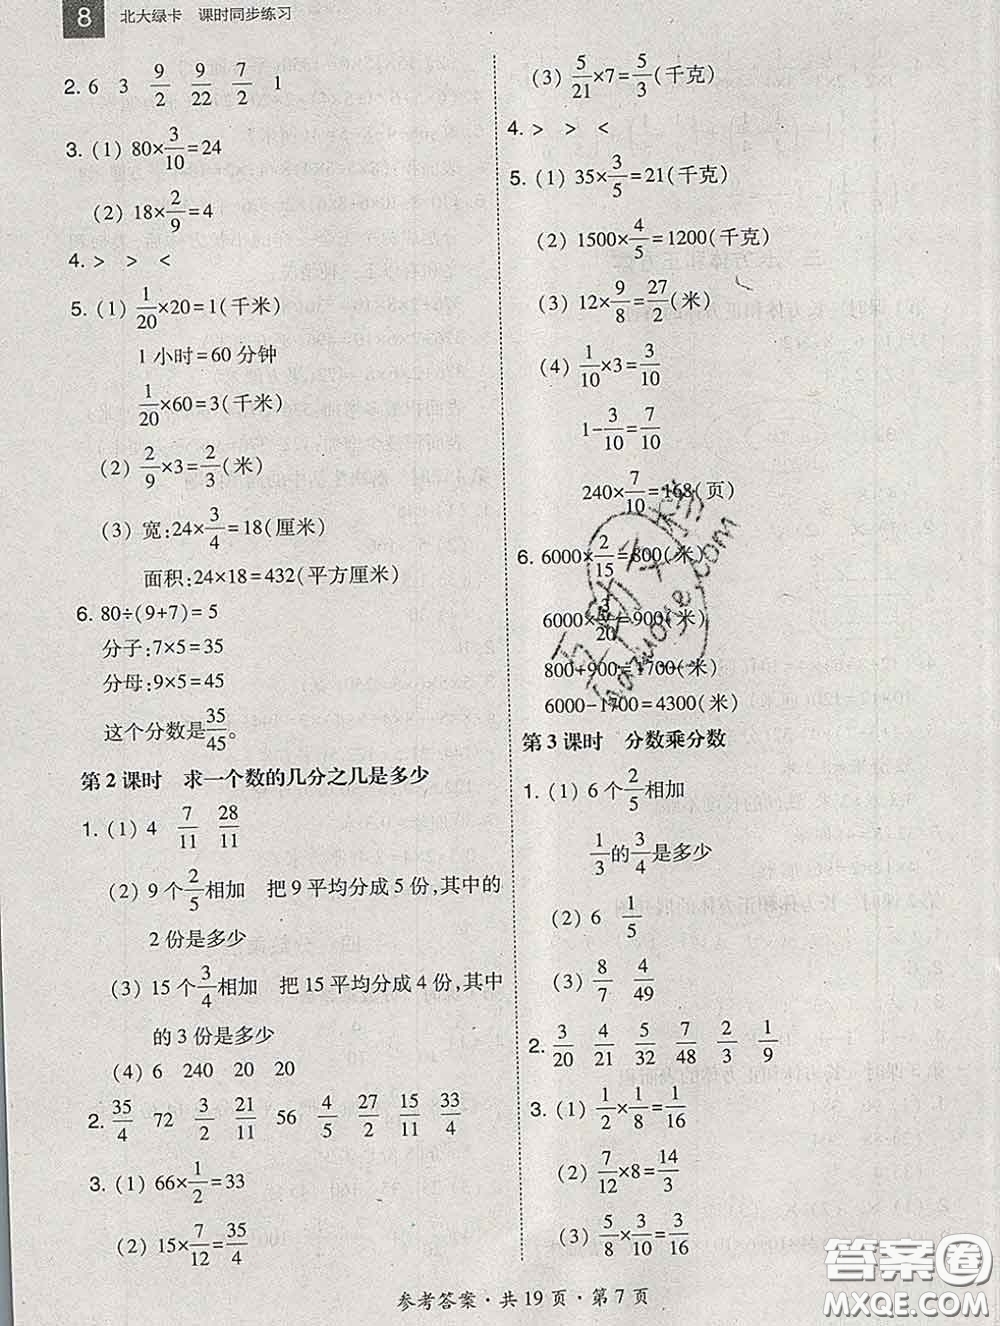 8 北大绿卡 课时同步练习
2. 6 3 9/2 9/22 7/2 1
3. (1) 80×3/10=24
(2) 18×2/9=4
4. > > >
5. (1) 1/20×20=1(千米)
1小时=60分钟
1/20×60=3(千米)
(2) 2/9×3=2/3(米)
(3) 宽:24×3/4=18(厘米)
面积:24×18=432(平方厘米)
6. 80÷(9+7)=5
分子:7×5=35
分母:9×5=45
这个分数是35/45。
第2课时 求一个数的几分之几是多少
1. (1) 4 7/11 28/11
(2) 9个2/5相加 把9平均分成5份,其中的
2份是多少
(3) 15个3/4相加 把15平均分成4份,其中
的3份是多少
(4) 6 240 20 20
2. 35/4 72 3/2 21/11 56 4/5 27/2 15/11 33/4
3. (1) 66×1/2=33
(2) 15×7/12=35/4
(3) 5/21×7=5/3(千克)
4. > > <
5. (1) 35×3/5=21(千克)
(2) 1500×4/5=1200(千克)
(3) 12×9/8=27/2(米)
(4) 1/10×3=3/10
1-3/10=7/10
240×7/10=168(页)
6. 6000×2/15=800(米)
6000×3/20=900(米)
800+900=1700(米)
6000-1700=4300(米)
第3课时 分数乘分数
1. (1) 6个2/5相加
1/3的3/4是多少
(2) 6 1/5
(3) 8/7 4/49
2. 3/20 4/21 5/32 7/48 2/3 1/9
3. (1) 1/2×1/8=1/16
(2) 7/12×8=14/3
(3) 5/8×3/10=3/16
参考答案·共19页·第7页
答案圈
MXQE.COM